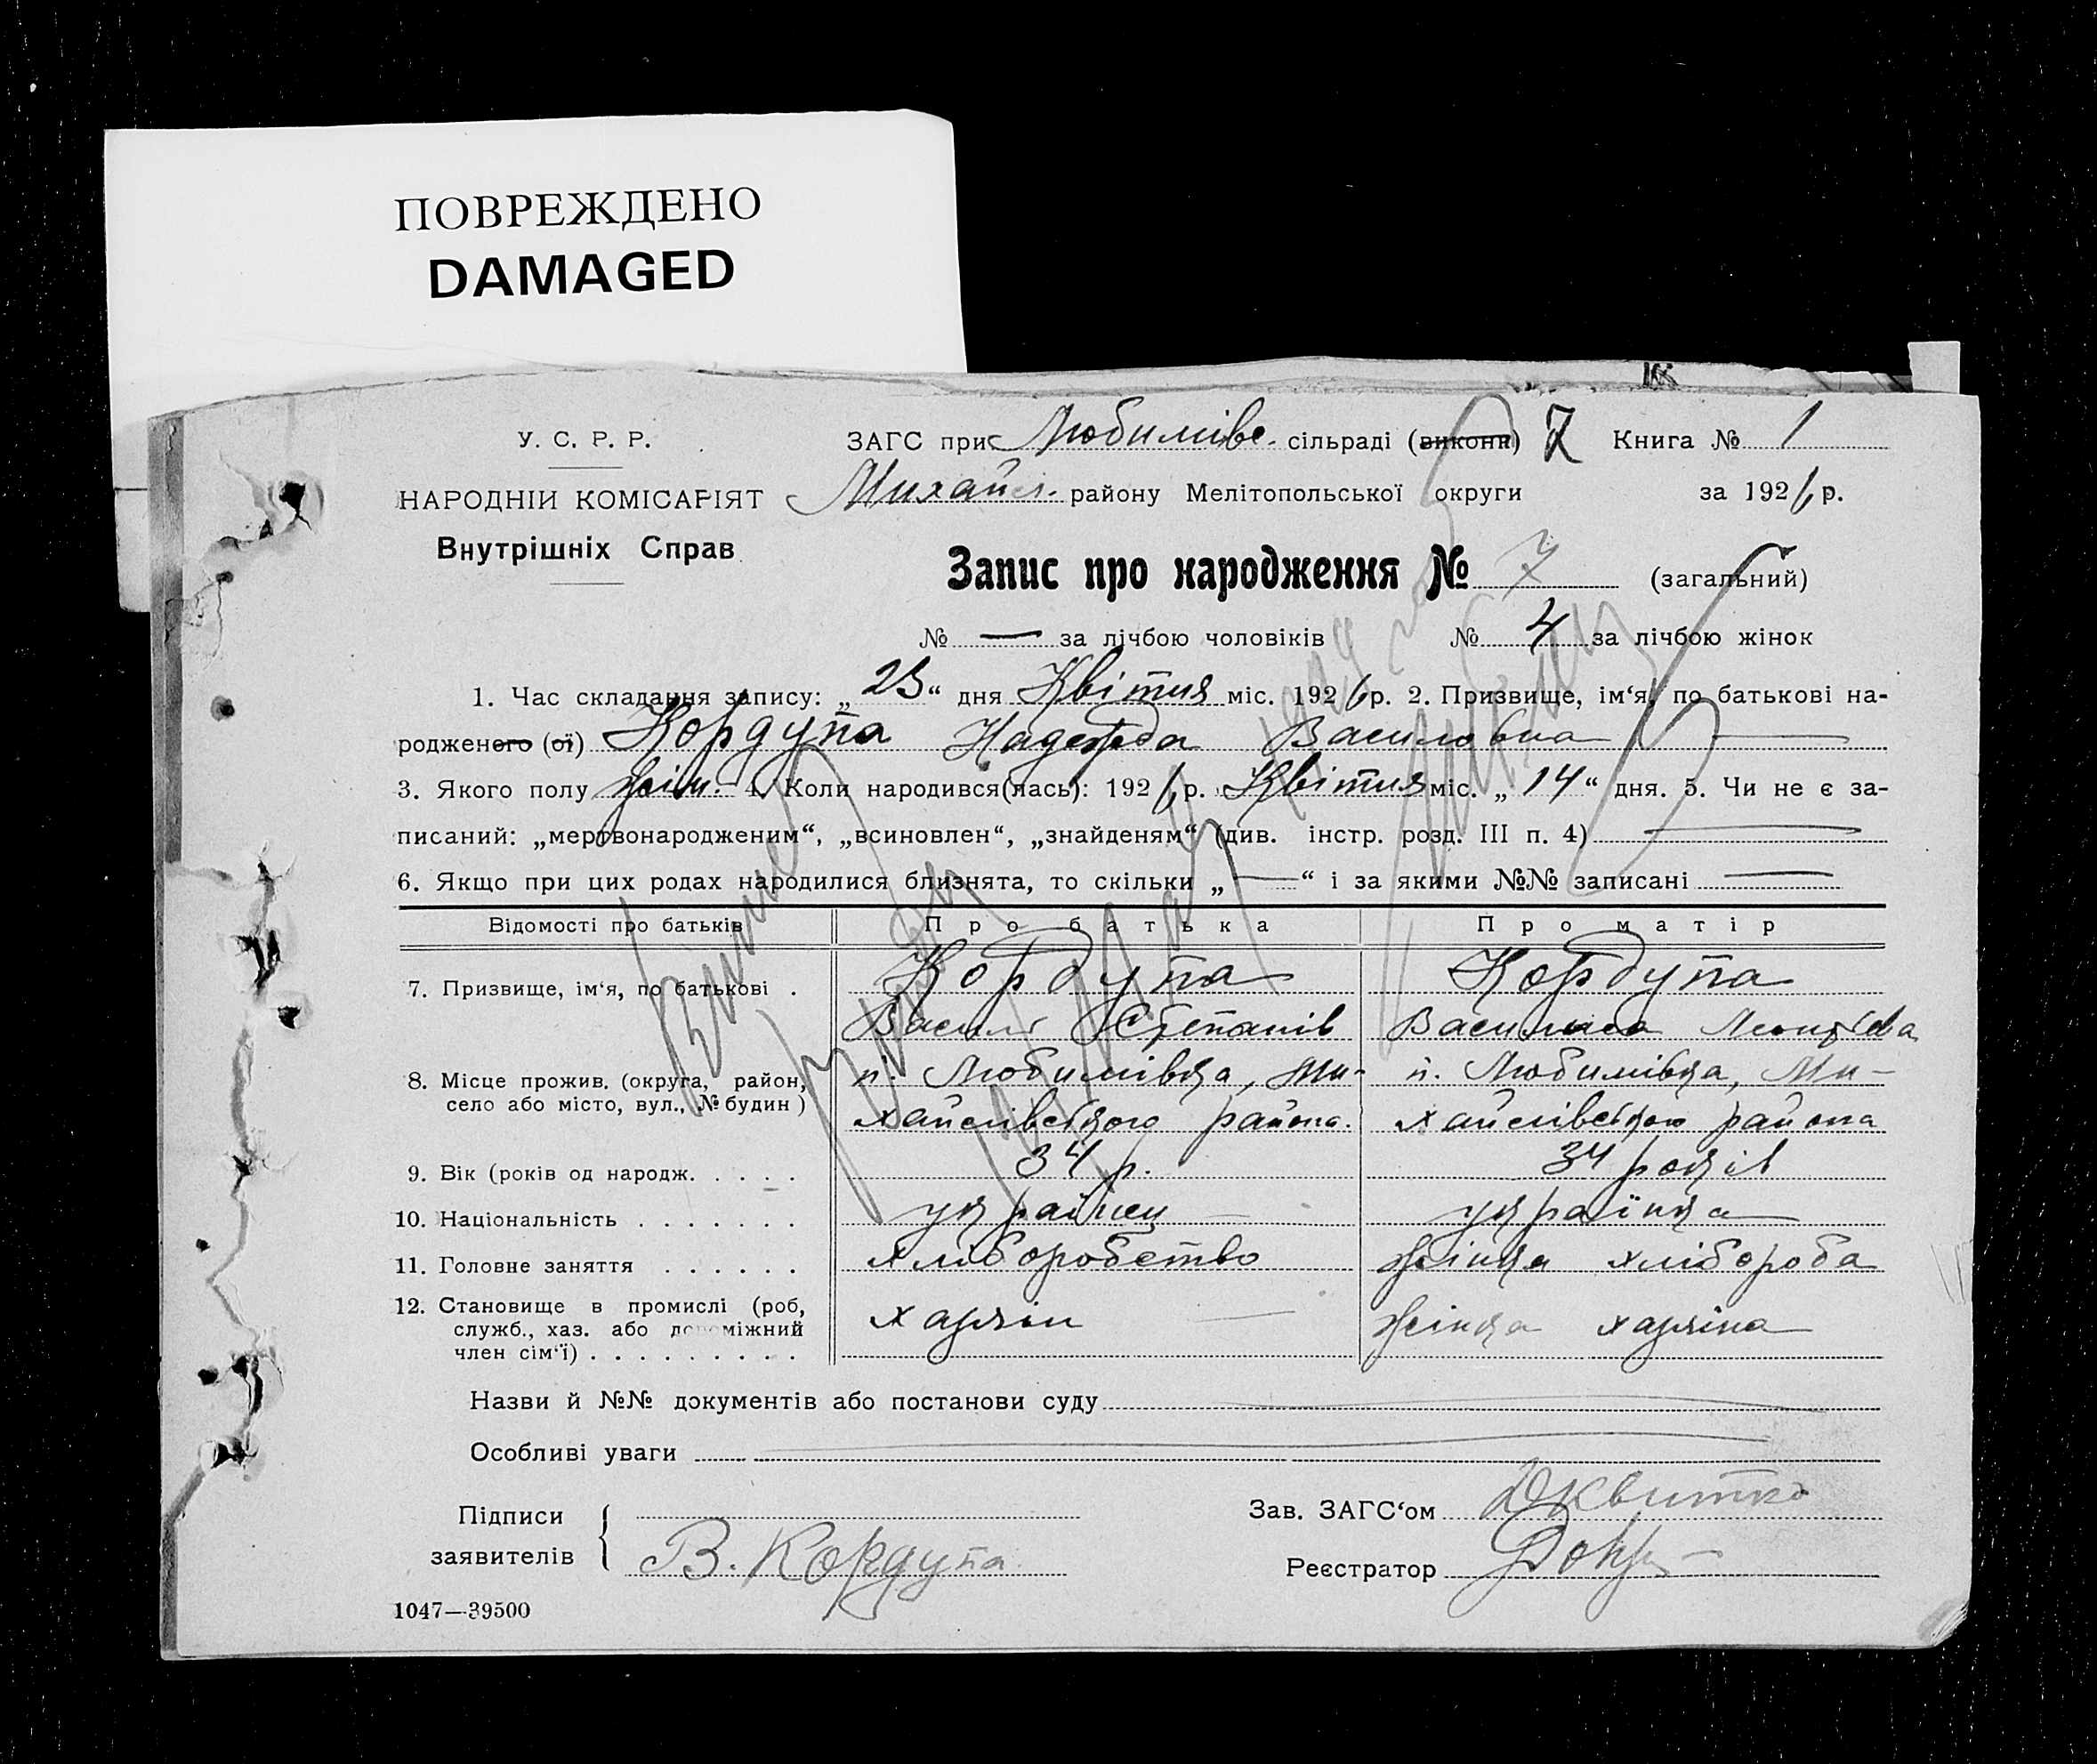 ПОВРЕЖДЕНО
DAMAGED
У. С. Р. Р.
ЗАГС при Любимівс. сільраді (викони) 7 Книга № 1
НАРОДНІЙ КОМІСАРІЯТ
Михайл. району Мелітопольської округи за 1926 р.
Внутрішніх Справ
Запис про народження № 7 (загальний)
№ — за лічбою чоловіків № 4 за лічбою жінок
1. Час складання запису: „23“ дня Квітня міс. 1926 р. 2. Призвище, ім‘я, по батькові на-
родженого (ої) Кордупа Надежда Василовна
3. Якого полу жін. 4. Коли народився(лась): 1926 р. Квітня міс. „14“ дня. 5. Чи не є за-
писаний: „мертвонародженим“, „всиновлен“, „знайденям“ (див. інстр. розд. III п. 4)
6. Якщо при цих родах народилися близнята, то скільки „—“ і за якими №№ записані —
Відомості про батьків Про батька Про матір
7. Призвище, ім‘я, по батькові . Кордупа Кордупа
Василь Степанів Василиса
8. Місце прожив. (округа, район, село або місто, вул., № будин) п. Любимівка, Ми- п. Любимівка, Ми-
хайлівського района. хайлівського района
9. Вік (років од народж. . . . . 34 р. 34 років
10. Національність . . . . . . . українец українка
11. Головне заняття . . . . . . хліборобство жінка хлібороба
12. Становище в промислі (роб, служб., хаз. або допоміжний член сім‘ї) . . . . . . . . . хазяін жінка хазяіна
Назви й №№ документів або постанови суду
Особливі уваги
Підписи заявителів В. Кордупа
Зав. ЗАГС‘ом Квитко
Реєстратор
1047—39500